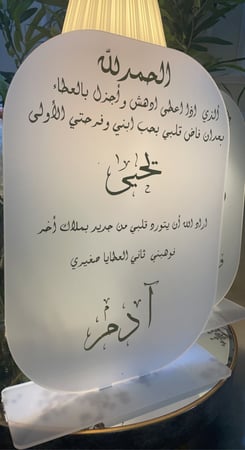 الحمدلله
الذي إذا اعطى ادهش وأجزل بالعطاء
بعد ان فاض قلبي بحب ابني وفرحتي الأولى
يحيى
اراد الله أن يتورد قلبي من جديد بملاك أخر
فوهبني ثاني العطايا صغيري
آدم